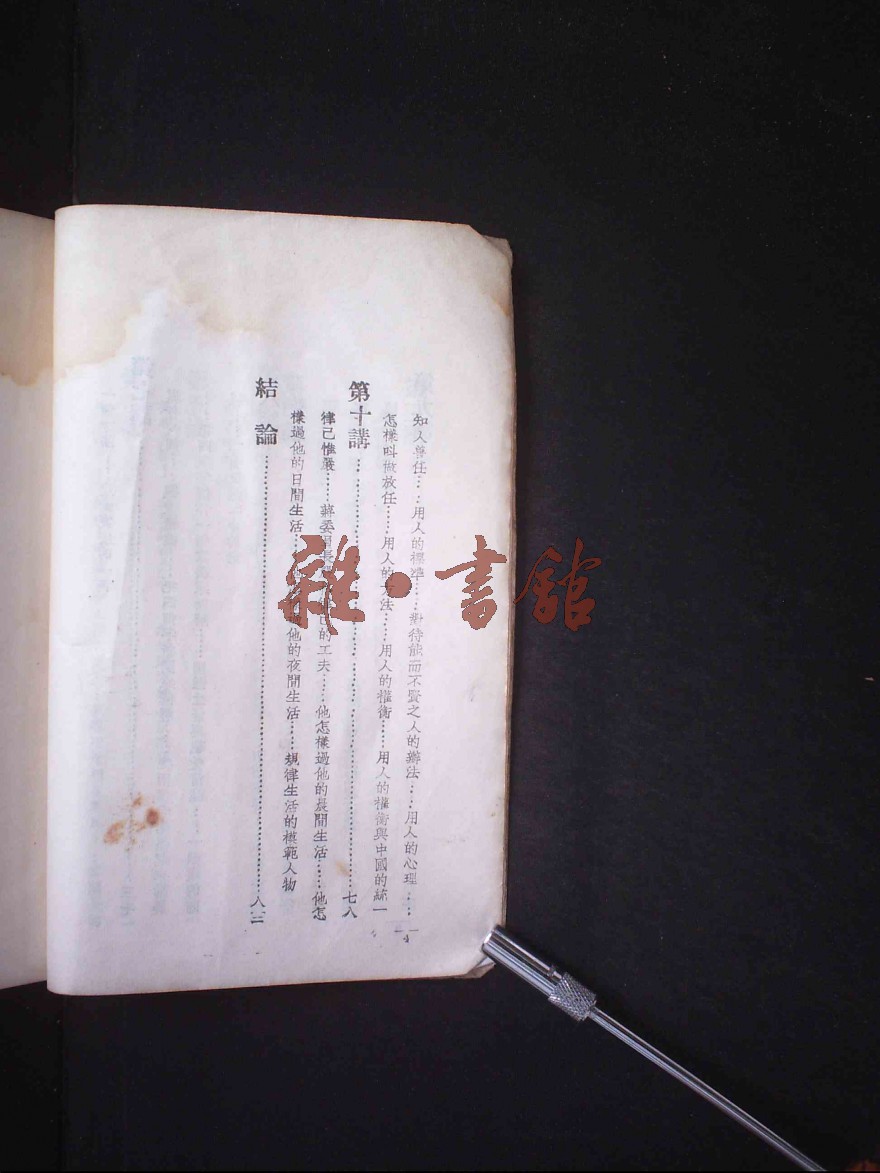 知人善任……用人的標準……對待能而不賢之人的辦法……用人的心理……
怎樣叫做放任……用人的方法……用人的權衡……用人的權衡與中國的統一
第十講……七八
律己惟嚴……蔣委員長律己的工夫……他怎樣過他的晨間生活……他怎
樣過他的日間生活……他的夜間生活……規律生活的模範人物
結論……八三
雜·書館